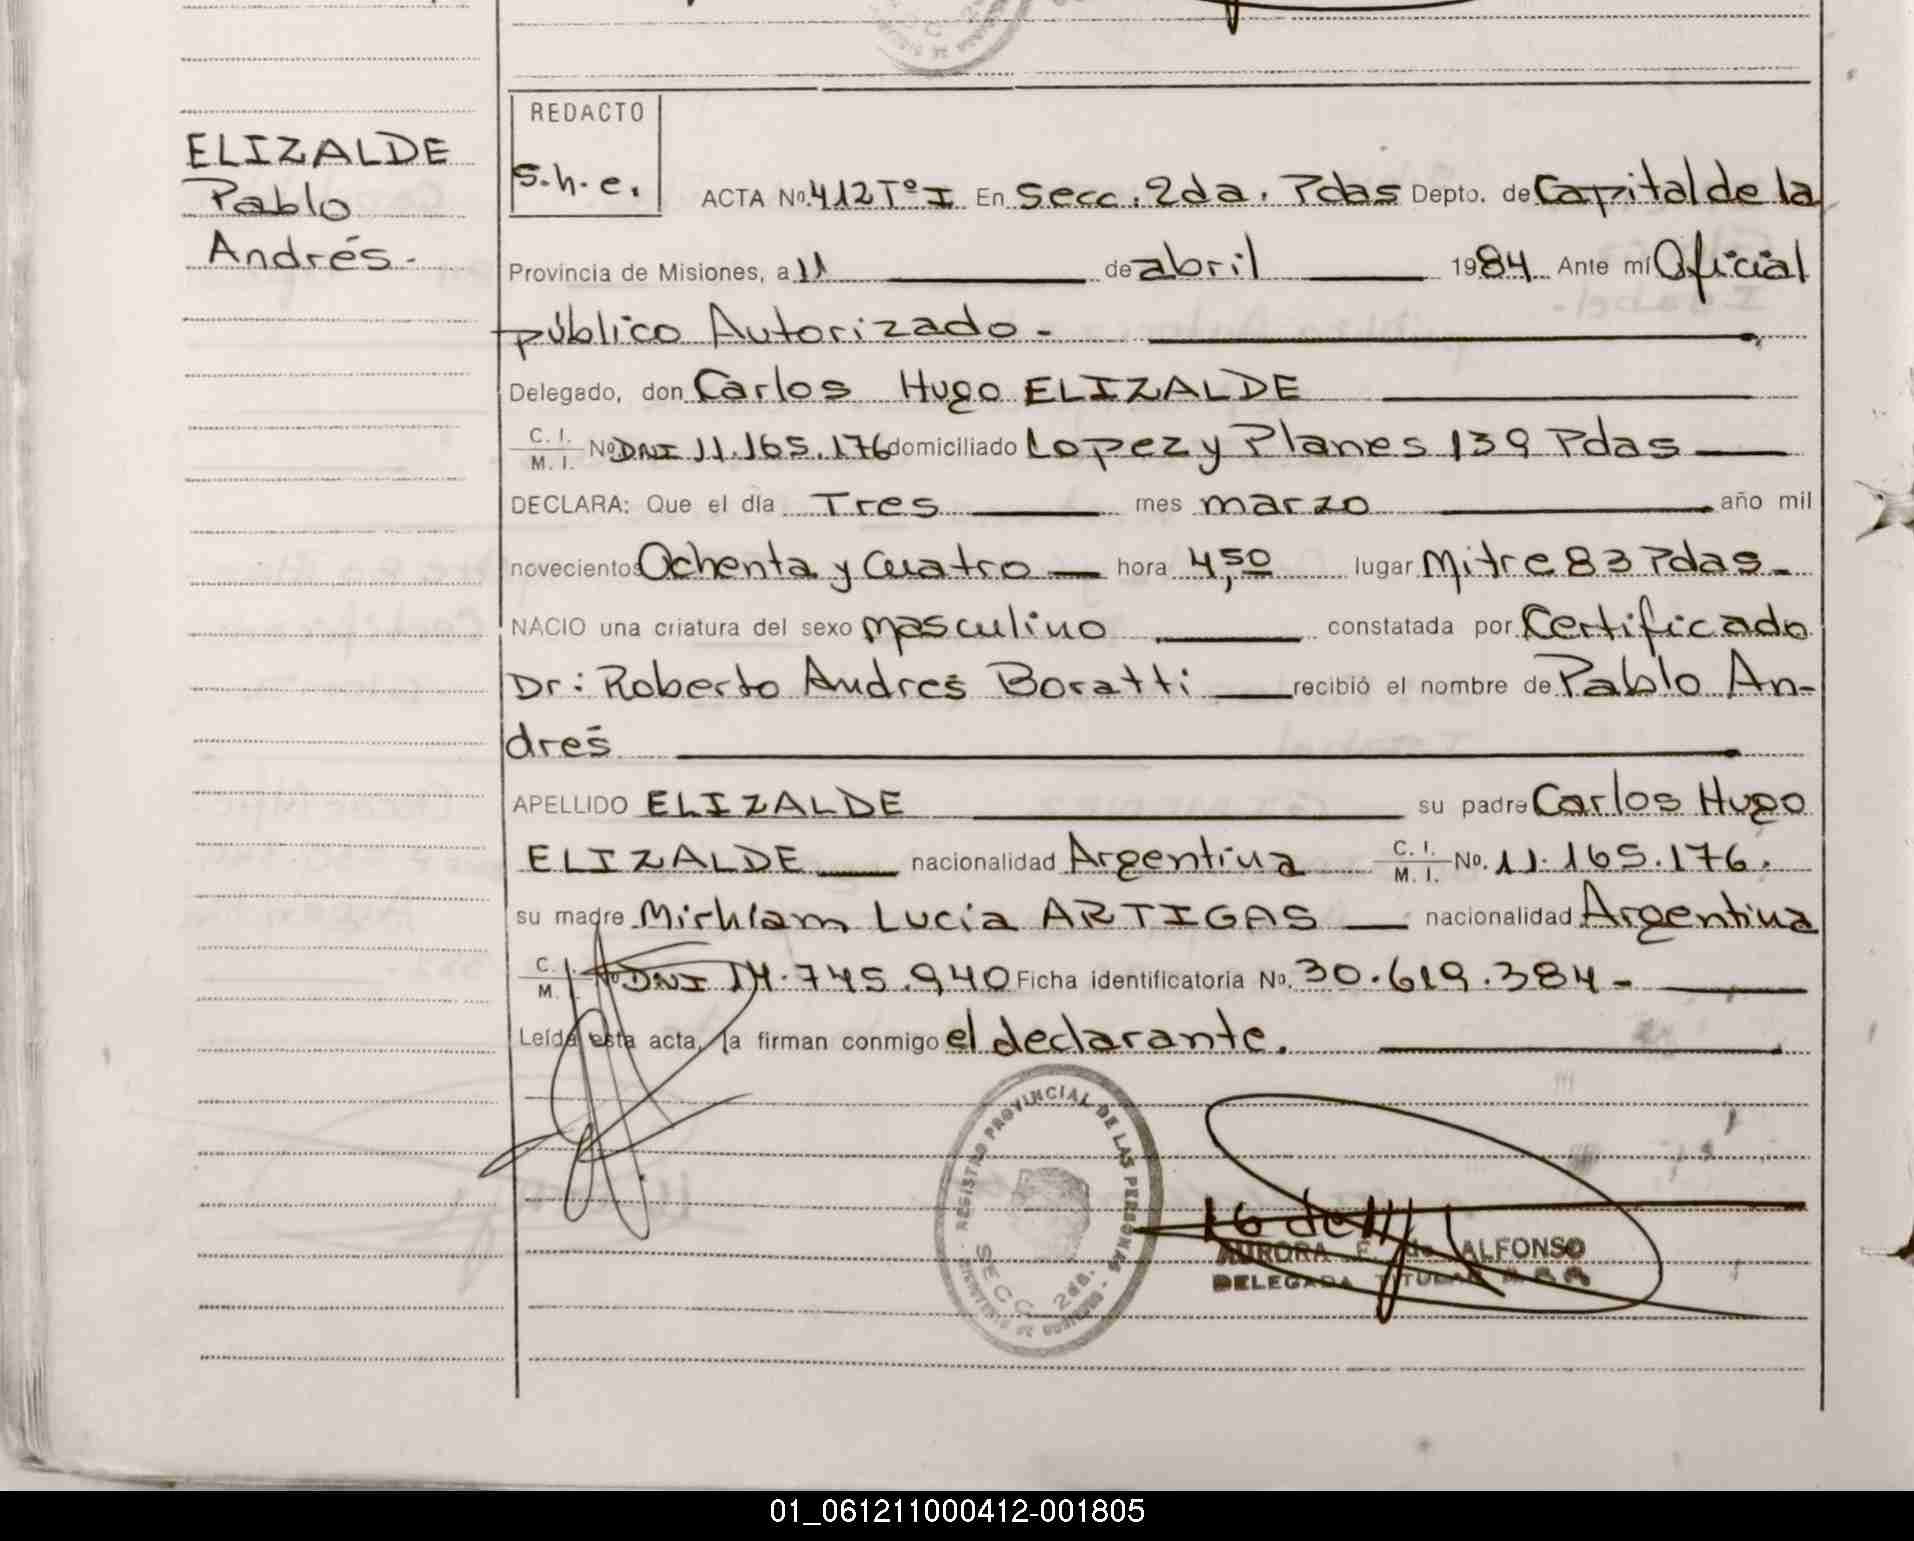 ELIZALDE
Pablo
Andrés.-
REDACTO
S.h.e.
ACTA Nº 412 Tº I En Secc. 2da. Pdas Depto. de Capital de la
Provincia de Misiones, a 11 de abril 1984 Ante mí Oficial
público Autorizado.-
Delegado, don Carlos Hugo ELIZALDE
C. I.
M. I. Nº DNI 11.165.176 domiciliado Lopez y Planes 139 Pdas
DECLARA: Que el día Tres mes marzo año mil
novecientos Ochenta y Cuatro hora 4,50 lugar Mitre 83 Pdas.-
NACIO una criatura del sexo masculino constatada por Certificado
Dr: Roberto Andres Boratti recibió el nombre de Pablo An-
drés
APELLIDO ELIZALDE su padre Carlos Hugo
ELIZALDE nacionalidad Argentina C. I. M. I. Nº. 11.165.176.
su madre Mirhiam Lucia ARTIGAS nacionalidad Argentina
C. I.
M. I. Nº DNI 14.745.940 Ficha identificatoria Nº. 30.619.384-
Leída esta acta, la firman conmigo el declarante.
REGISTRO PROVINCIAL DE LAS PERSONAS
SECC 2da.
AURORA de ALFONSO
DELEGADA TITULAR
01_061211000412-001805